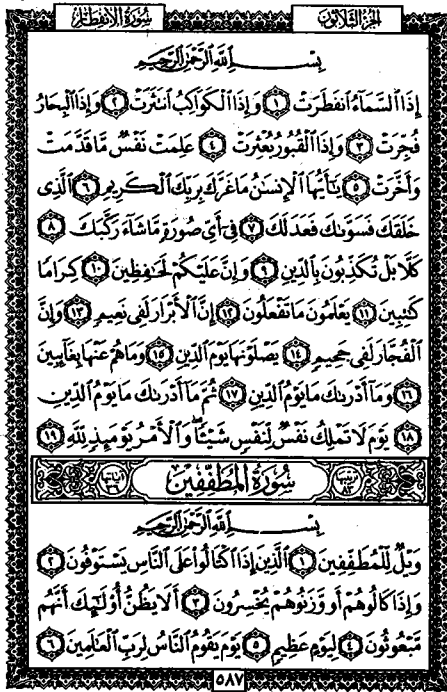 سُورَةُ الانفِطَارِ الجُزْءُ الثَّلاثُونَ
بِسْمِ اللَّهِ الرَّحْمَٰنِ الرَّحِيمِ
إِذَا ٱلسَّمَآءُ ٱنفَطَرَتْ ١ وَإِذَا ٱلْكَوَاكِبُ ٱنتَثَرَتْ ٢ وَإِذَا ٱلْبِحَارُ
فُجِّرَتْ ٣ وَإِذَا ٱلْقُبُورُ بُعْثِرَتْ ٤ عَلِمَتْ نَفْسٌ مَّا قَدَّمَتْ
وَأَخَّرَتْ ٥ يَٰٓأَيُّهَا ٱلْإِنسَٰنُ مَا غَرَّكَ بِرَبِّكَ ٱلْكَرِيمِ ٦ ٱلَّذِى
خَلَقَكَ فَسَوَّىٰكَ فَعَدَلَكَ ٧ فِىٓ أَىِّ صُورَةٍ مَّا شَآءَ رَكَّبَكَ ٨
كَلَّا بَلْ تُكَذِّبُونَ بِٱلدِّينِ ٩ وَإِنَّ عَلَيْكُمْ لَحَٰفِظِينَ ١٠ كِرَامًا
كَٰتِبِينَ ١١ يَعْلَمُونَ مَا تَفْعَلُونَ ١٢ إِنَّ ٱلْأَبْرَارَ لَفِى نَعِيمٍ ١٣ وَإِنَّ
ٱلْفُجَّارَ لَفِى جَحِيمٍ ١٤ يَصْلَوْنَهَا يَوْمَ ٱلدِّينِ ١٥ وَمَا هُمْ عَنْهَا بِغَآئِبِينَ
١٦ وَمَآ أَدْرَىٰكَ مَا يَوْمُ ٱلدِّينِ ١٧ ثُمَّ مَآ أَدْرَىٰكَ مَا يَوْمُ ٱلدِّينِ
١٨ يَوْمَ لَا تَمْلِكُ نَفْسٌ لِّنَفْسٍ شَيْـًٔا ۖ وَٱلْأَمْرُ يَوْمَئِذٍ لِّلَّهِ ١٩
ترتيبها ٨٣ سُورَةُ المُطَفِّفِينَ آياتها ٣٦
بِسْمِ اللَّهِ الرَّحْمَٰنِ الرَّحِيمِ
وَيْلٌ لِّلْمُطَفِّفِينَ ١ ٱلَّذِينَ إِذَا ٱكْتَالُوا۟ عَلَى ٱلنَّاسِ يَسْتَوْفُونَ ٢
وَإِذَا كَالُوهُمْ أَو وَّزَنُوهُمْ يُخْسِرُونَ ٣ أَلَا يَظُنُّ أُو۟لَٰٓئِكَ أَنَّهُم
مَّبْعُوثُونَ ٤ لِيَوْمٍ عَظِيمٍ ٥ يَوْمَ يَقُومُ ٱلنَّاسُ لِرَبِّ ٱلْعَٰلَمِينَ ٦
٥٨٧